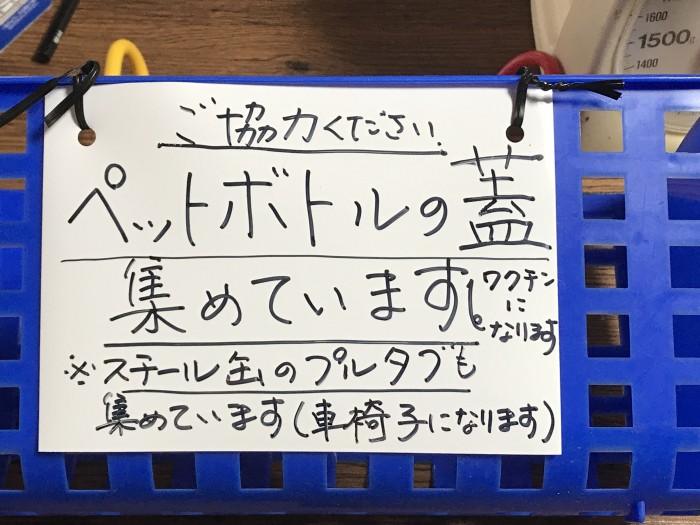 ご協力ください
ペットボトルの蓋
集めています。
ワクチン
に
なります
※スチール缶のプルタブも
集めています(車椅子になります)
1600
1500
1400